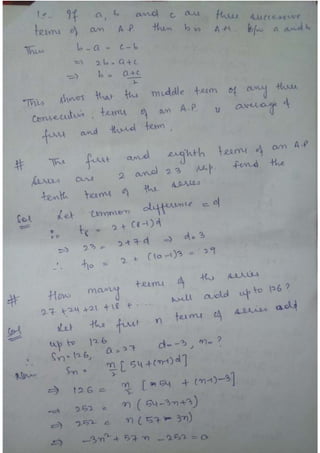 i.e. If a, b and c are three successive
terms of an A.P. then b is A.M. b/w a and b
Then b-a = c-b
⇒ 2b = a+c
⇒ b = a+c/2
This shows that the middle term of any three
consecutive terms of an A.P is average of
first and third term.
# The first and eighth terms of an A.P
series are 2 and 23 resp. find the
tenth terms of the series.
Sol Let common difference = d
∴ t8 = 2 + (8-1)d
⇒ 23 = 2+7d ⇒ d=3
∴ t10 = 2 + (10-1)3 = 29
# How many terms of the series
27 + 24 + 21 + 18 + ... will add up to 126?
Sol Let the first n terms of series add
up to 126
∴ Sn = 126, a = 27 d = -3, n = ?
Now Sn = n/2 [54+(n-1)d]
⇒ 126 = n/2 [54 + (n-1)-3]
⇒ 252 = n (54-3n+3)
⇒ 252 = n (57-3n)
⇒ -3n² + 57n - 252 = 0